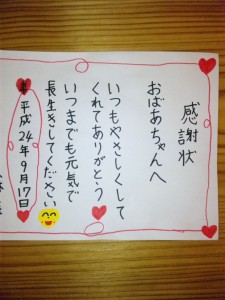 感謝状
おばあちゃんへ
いつもやさしくして
くれてありがとう
いつまでも元気で
長生きしてください
平成24年9月17日